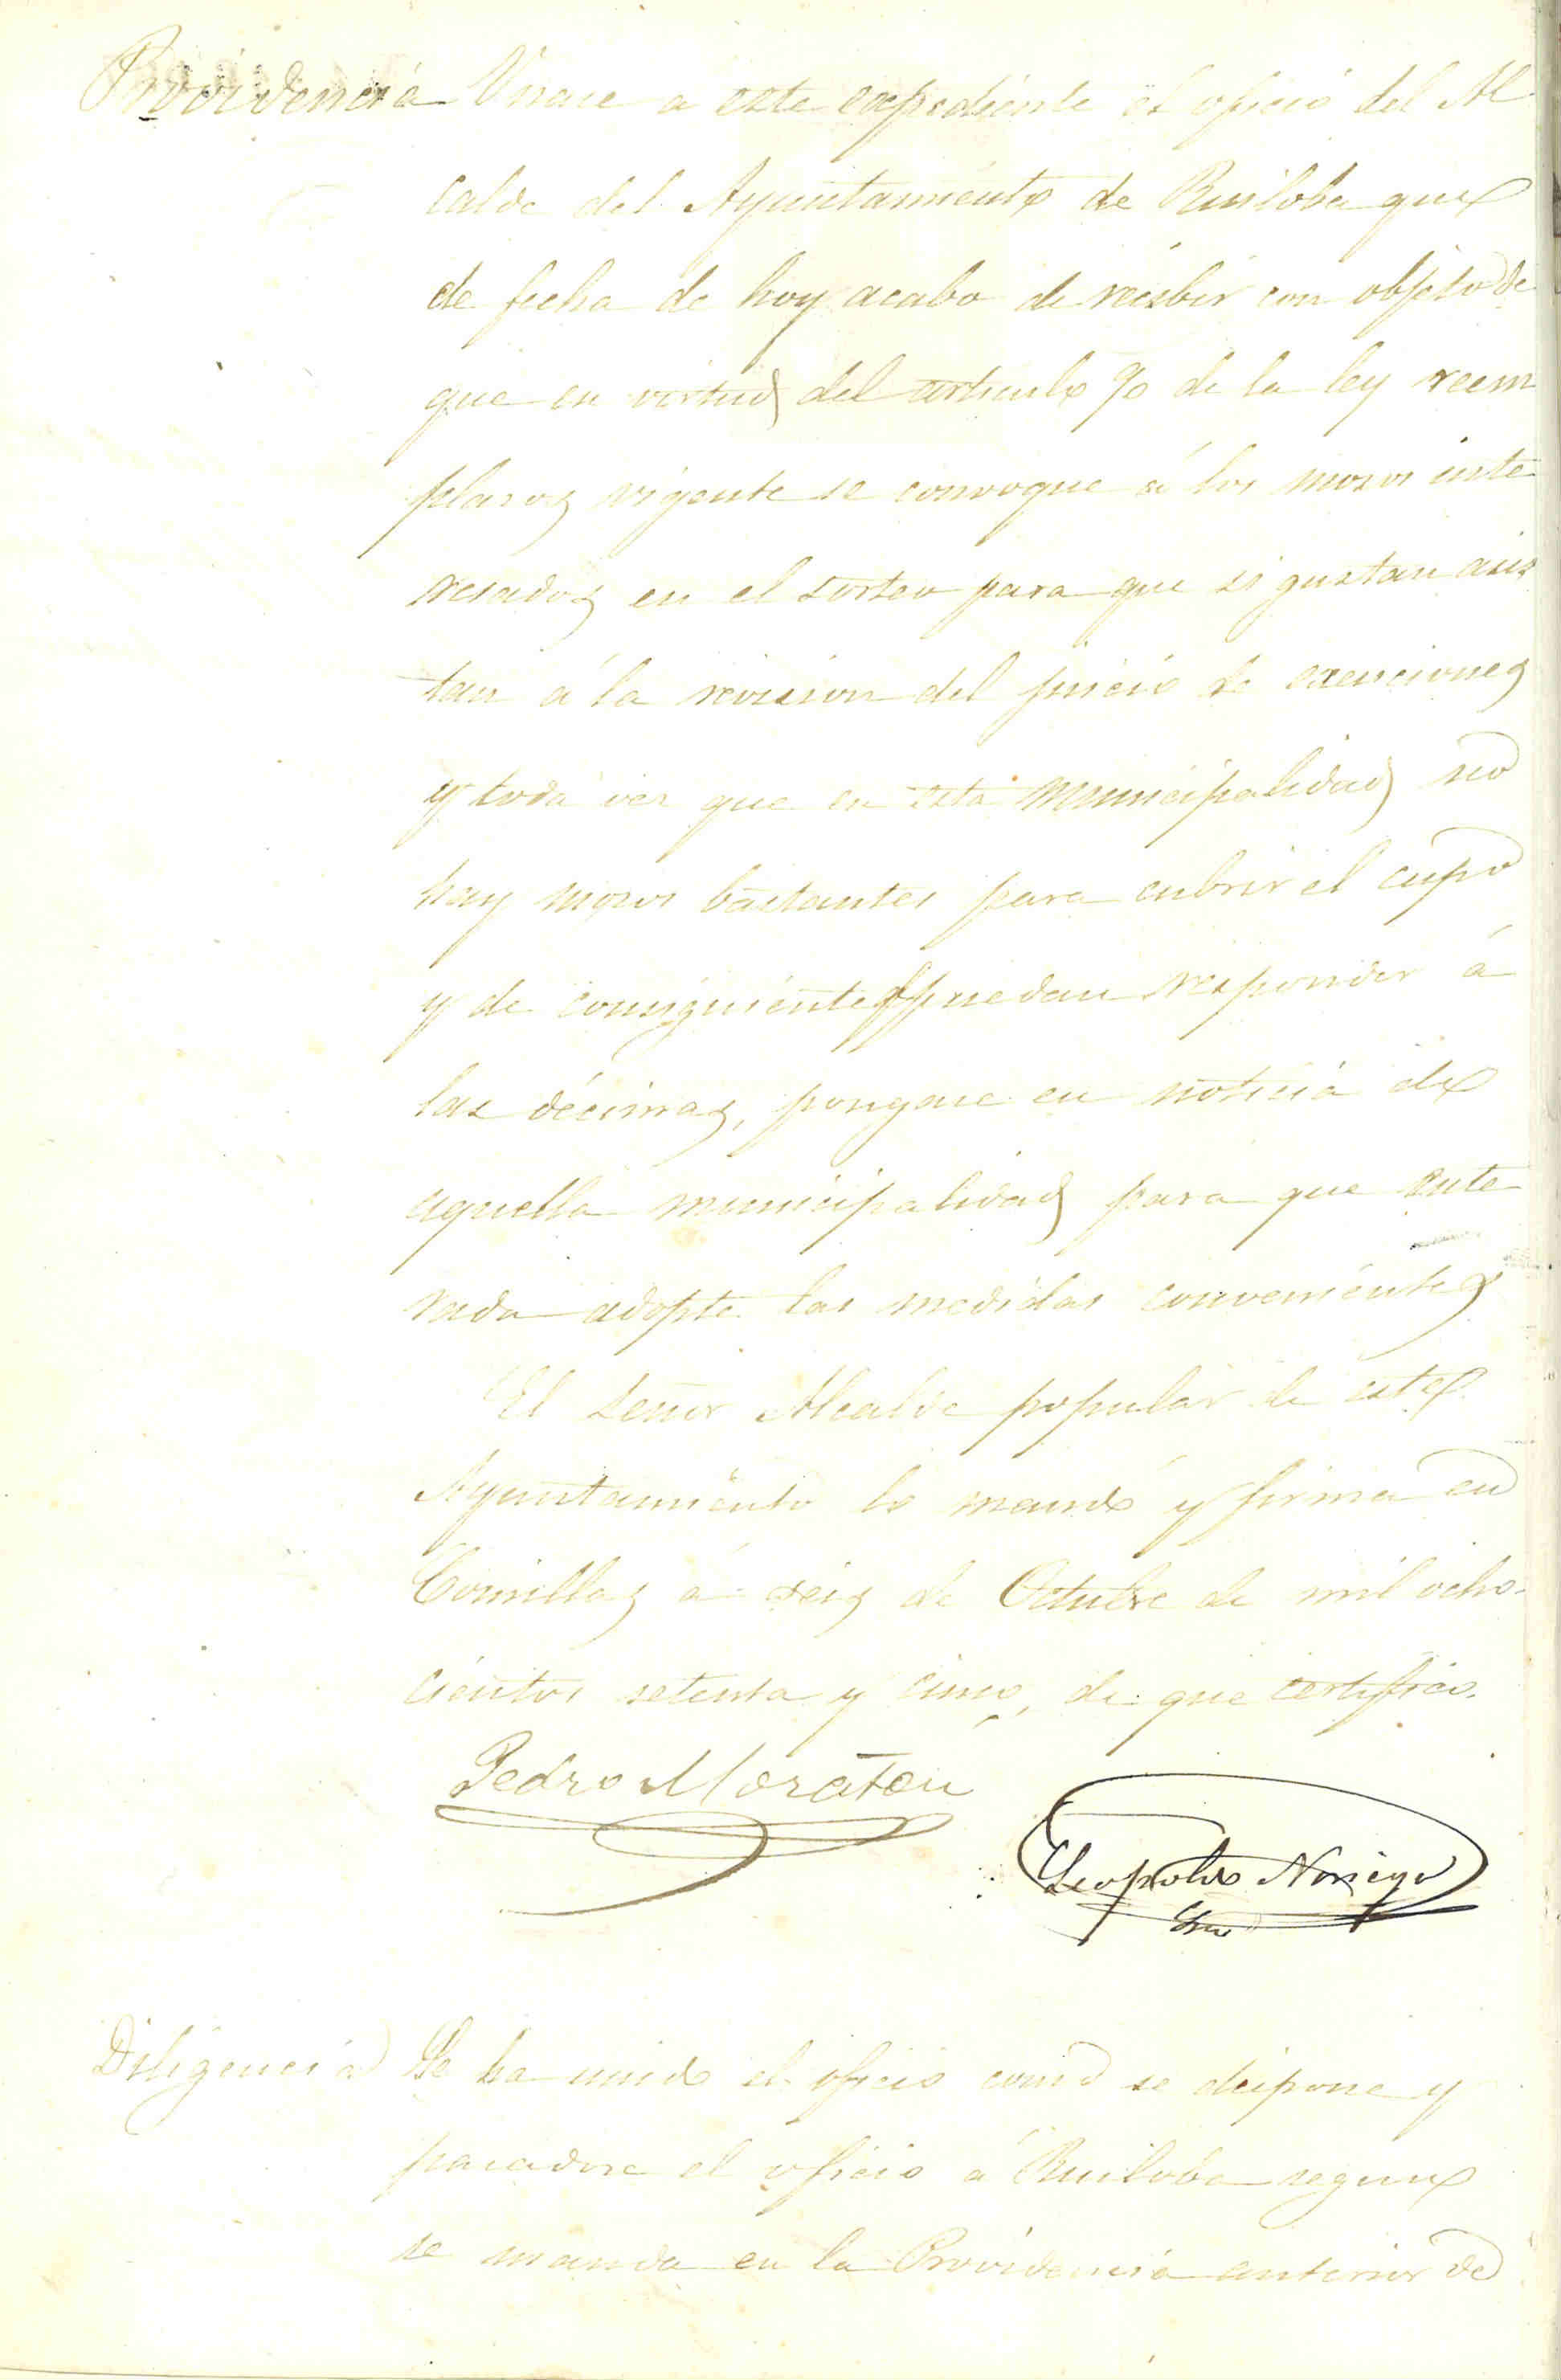 Providencia Unase a este expediente el oficio del Al
calde del Ayuntamiento de Ruiloba que
de fecha de hoy acabo de recibir con objeto de
que en virtud del articulo de la ley reem
plazos vigente se convoque á los mozos inte
resados en el sorteo para que si gustan asis
tan á la revision del juicio de exenciones
y toda vez que en esta municipalidad no
hay mozos bastantes para cubrir el cupo
y de consiguiente puedan responder á
las décimas, pongase en noticia de
aquella municipalidad para que ente
rada adopte las medidas convenientes
El Señor Alcalde popular de este
Ayuntamiento lo mandó y firma en
Comillas á seis de Octubre de mil ocho-
cientos setenta y cinco, de que certifico.
Pedro Moratón
Leopoldo Noriega
Srio
Diligencia Se ha unido el oficio como se dispone y
pasadose el oficio á Ruiloba segun
se manda en la Providencia anterior de